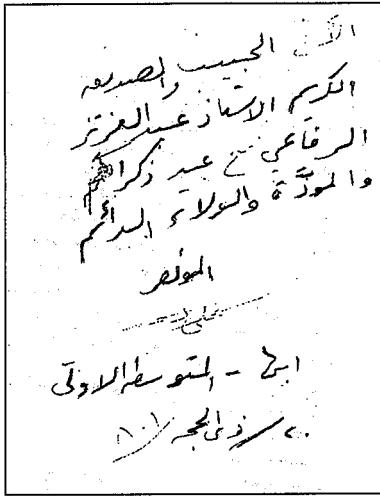 الأخ الحبيب والصديق
الكريم الاستاذ عبد العزيز
الرفاعي مع عبير ذكراكم
والمودَّة والولاء الدائم
المؤلف
ابها - المتوسطة الاولى
٢٠/ ذي الحجه /